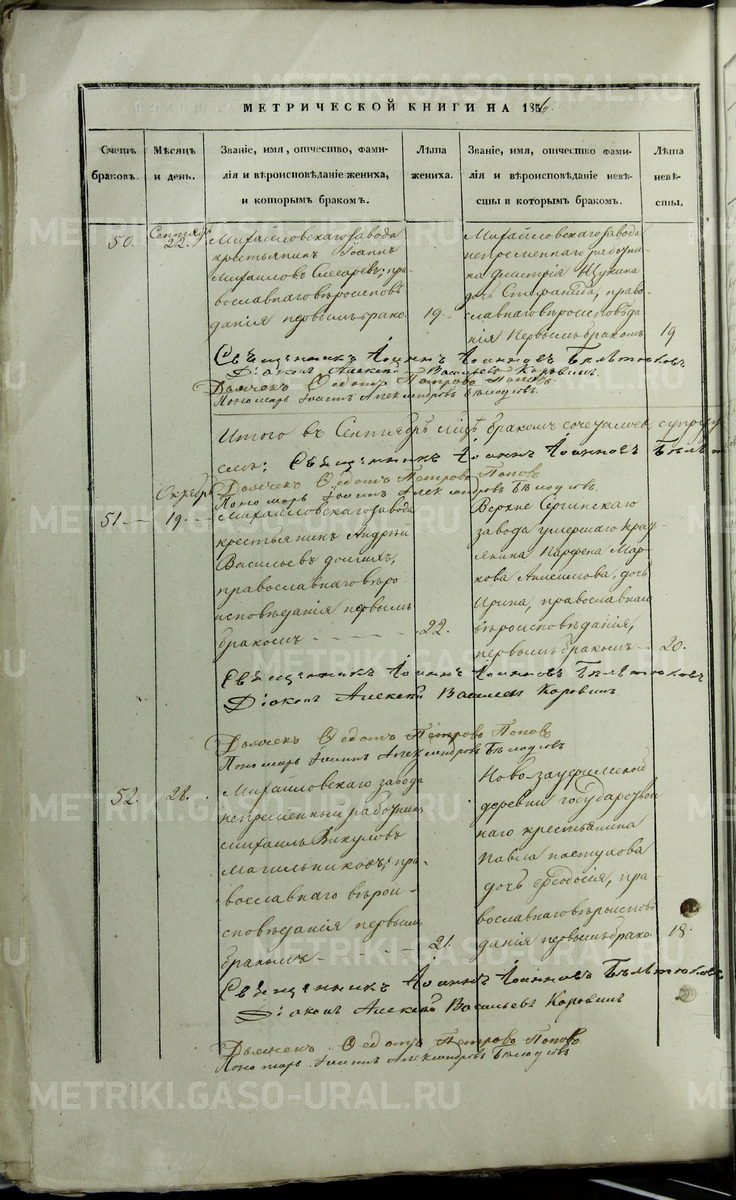 МЕТРИЧЕСКОЙ КНИГИ НА 1836.
Счетъ браковъ.
Мѣсяцъ и день.
Званіе, имя, отчество, фами-
лія и вѣроисповѣданіе жениха,
и которымъ бракомъ.
Лѣта жениха.
Званіе, имя, отчество фами-
лія и вѣроисповѣданіе невѣ-
сты и которымъ бракомъ.
Лѣта невѣ-
сты.
50.
Сентяб. 22.
Михайловскаго завода
крестьянинъ Іоаннъ
Михайловъ Слесаревъ, пра-
вославнаго вѣроисповѣ
данія первымъ брако
19.
Михайловскаго завода
непремѣннаго работни-
ка Димитрія Щукина
дочь Стефанида, право-
славнаго вѣроисповѣда
нія первымъ бракомъ
19
Священникъ Іоаннъ Іоанновъ Бѣлтюковъ
Діаконъ Алексѣй Васильевъ Коровинъ
Дьячекъ Ѳедотъ Петровъ Поповъ
Пономарь Іоаннъ Александровъ
Итого въ Сентябрѣ мцѣ бракомъ сочеталися супру
Священникъ Іоаннъ Іоанновъ
Дьячекъ Ѳедотъ Петровъ Поповъ
Пономарь Іоаннъ Александровъ
51
Октября 19.
Михайловскаго завода
крестьянинъ Андрей
Васильевъ Долгихъ,
православнаго вѣро
исповѣданія первымъ
бракомъ
22.
Верхне Сергинскаго
завода умершаго
Парфена Мар-
кова Анисимова, дочь
Ирина, православнаго
вѣроисповѣданія,
первымъ бракомъ
20.
Священникъ Іоаннъ Іоанновъ Бѣлтюковъ
Діаконъ Алексѣй Васильевъ Коровинъ
Дьячекъ Ѳедотъ Петровъ Поповъ
Пономарь Іоаннъ Александровъ
52.
28.
Михайловскаго завода
непременный работникъ
Михаилъ Викуловъ
Магильниковъ, пра-
вославнаго вѣрои-
сповѣданія первымъ
бракомъ
21.
Ново-Зауфимской
деревни государствен
наго крестьянина
Павла Пастухова
дочь Ѳеодосія, пра-
вославнаго вѣроисповѣ
данія первымъ брако
18.
Священникъ Іоаннъ Іоанновъ Бѣлтюковъ
Діаконъ Алексѣй Васильевъ Коровинъ
Дьячекъ Ѳедотъ Петровъ Поповъ
Пономарь Іоаннъ Александровъ
METRIKI.GASO-URAL.RU